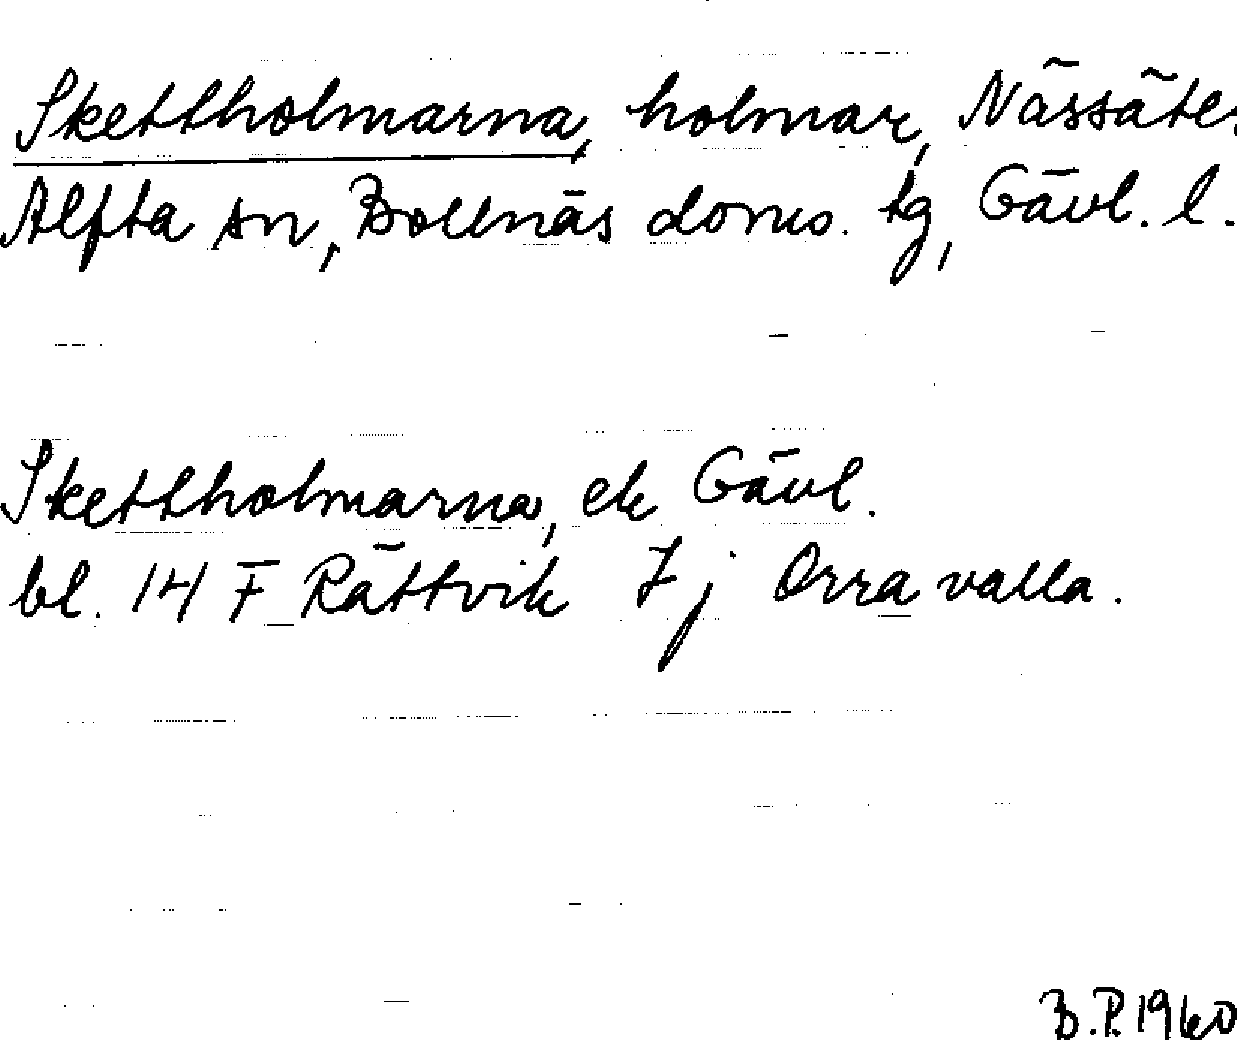 Skettholmarna, holmar, Nässäter
Alfta sn, Bollnäs doms. tg, Gävl. l.
Skettholmarna, ek Gävl.
bl. 14 F Rättvik 7j Orravalla.
B.P. 1960